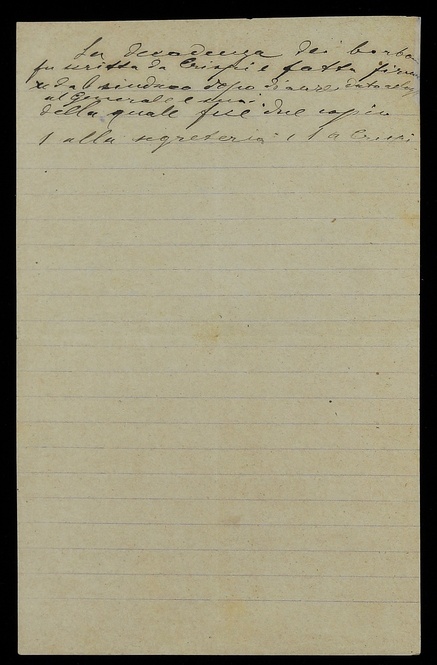 La decadenza dei borbo
fu scritta da Crispi e fatta firma
re dal sindaco dopo
al Generale e
della quale feci due copie
1 alla segreteria e 1 a Crispi